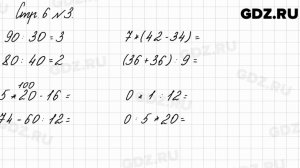 Стр. 6 № 3.
GDZ.RU
90 : 30 = 3
7*(42-34)=
80 : 40 = 2
(36+36) : 9 =
100
5*20-16=
0*1:12=
74-60:12=
0:5*20=